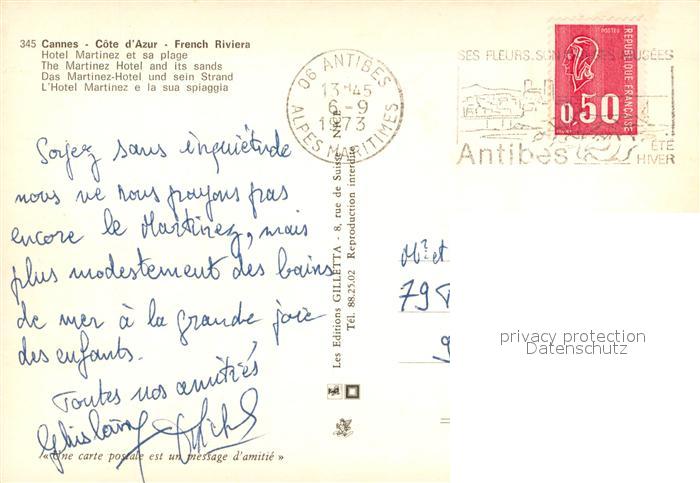 345 Cannes - Côte d'Azur - French Riviera
Hotel Martinez et sa plage
The Martinez Hotel and its sands
Das Martinez-Hotel und sein Strand
L'Hotel Martinez e la sua spiaggia
06 ANTIBES
13H45
6-9
1973
ALPES MARITIMES
SES FLEURS. SON MUSÉES
Antibes
ÉTÉ
HIVER
POSTES
RÉPUBLIQUE FRANÇAISE
0,50
Soyez sans inquiétude
nous ne nous payons pas
encore le Martinez, mais
plus modestement des bains
de mer à la grande joie
des enfants.
Toutes nos amitiés
Ghislaine Michel
« Une carte postale est un message d'amitié »
Les Editions GILLETTA - 8, rue de Suisse - NICE
Tél. 88.25.02 Reproduction interdite
Mr et
79
9
privacy protection
Datenschutz